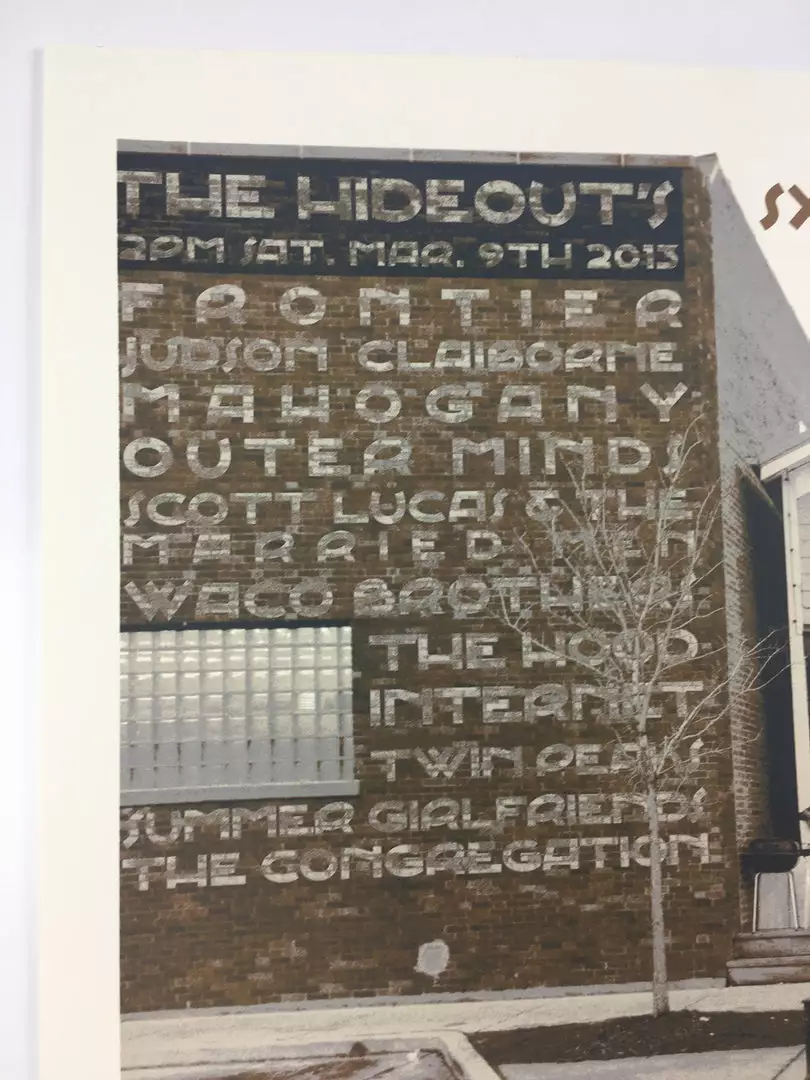 THE HIDEOUT'S
2PM SAT. MAR. 9TH 2013
FRONTIER
JUDSON CLAIBORNE
MAHOGANY
OUTER MINDS
SCOTT LUCAS & THE
MARRIED MEN
WACO BROTHERS
THE HOOD
INTERNET
TWIN PEAKS
SUMMER GIRLFRIENDS
THE CONGREGATION